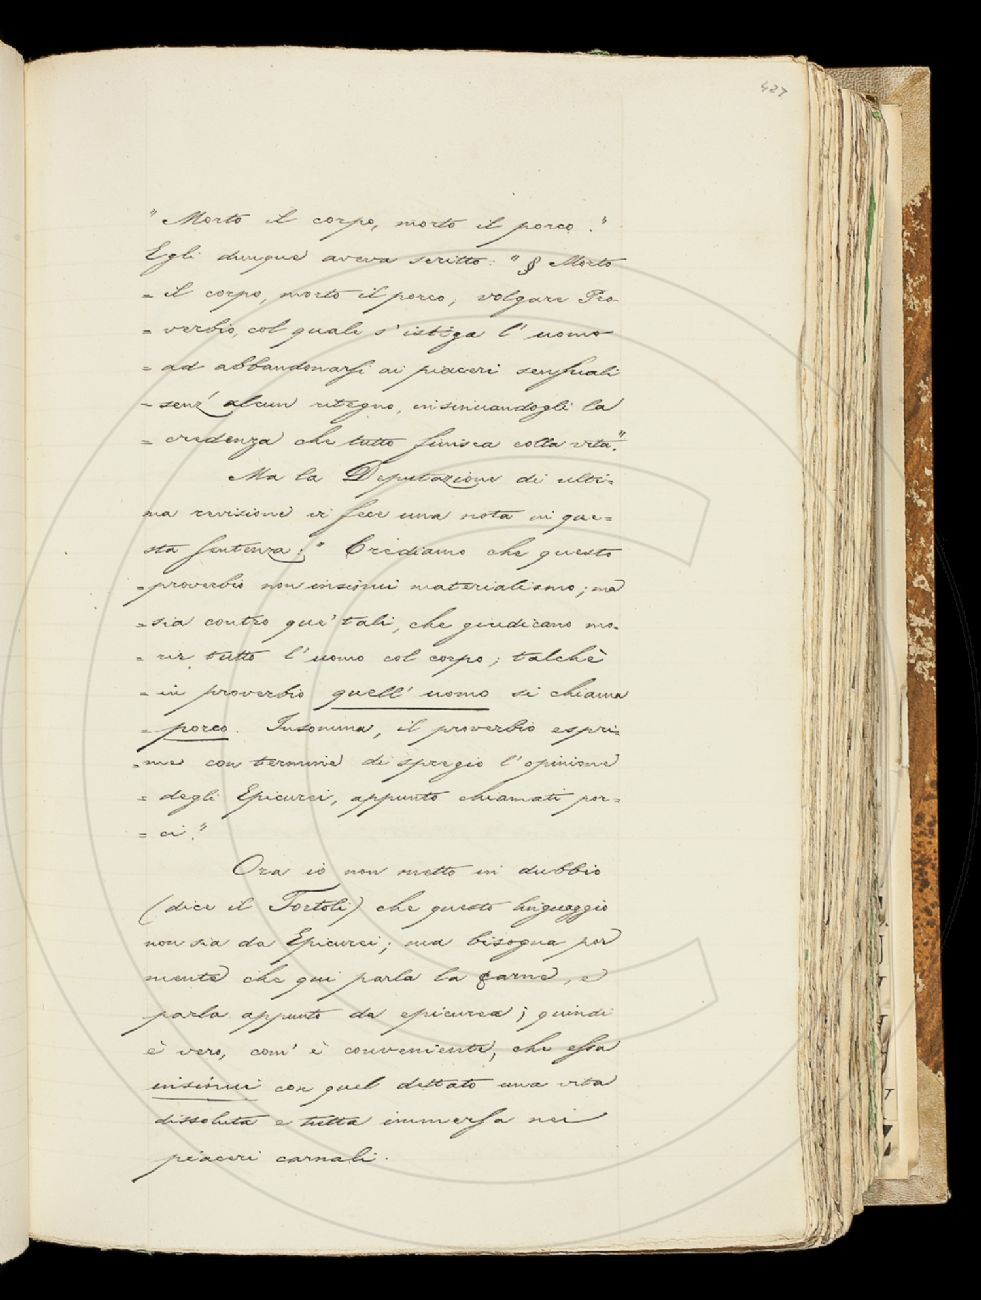 427
"Morto il corpo, morto il porco."
Egli dunque aveva scritto: "§ Morto
= il corpo, morto il porco; volgare Pro
= verbio, col quale s'istiga l'uomo
= ad abbandonarsi ai piaceri sensuali
= senz'alcun ritegno, insinuandogli la
= credenza che tutto finisca colla vita".
Ma la Deputazione di ulti=
ma revisione ci fece una nota in que=
sta sentenza: "Crediamo che questo
= proverbio non insinui materialismo; ma
= sia contro que' tali, che giudicano mo=
= rir tutto l'uomo col corpo; talchè
= in proverbio quell'uomo si chiama
= porco. Insomma, il proverbio espri=
= me con termine di spregio l'opinione
= degli Epicurei, appunto chiamati por=
= ci."
Ora io non metto in dubbio
(dice il Tortoli) che questo linguaggio
non sia da Epicurei; ma bisogna por
mente che qui parla la carne, e
parla appunto da epicurea; quindi
è vero, com'è conveniente, che essa
insinui con quel dettato una vita
dissoluta e tutta immersa nei
piaceri carnali.